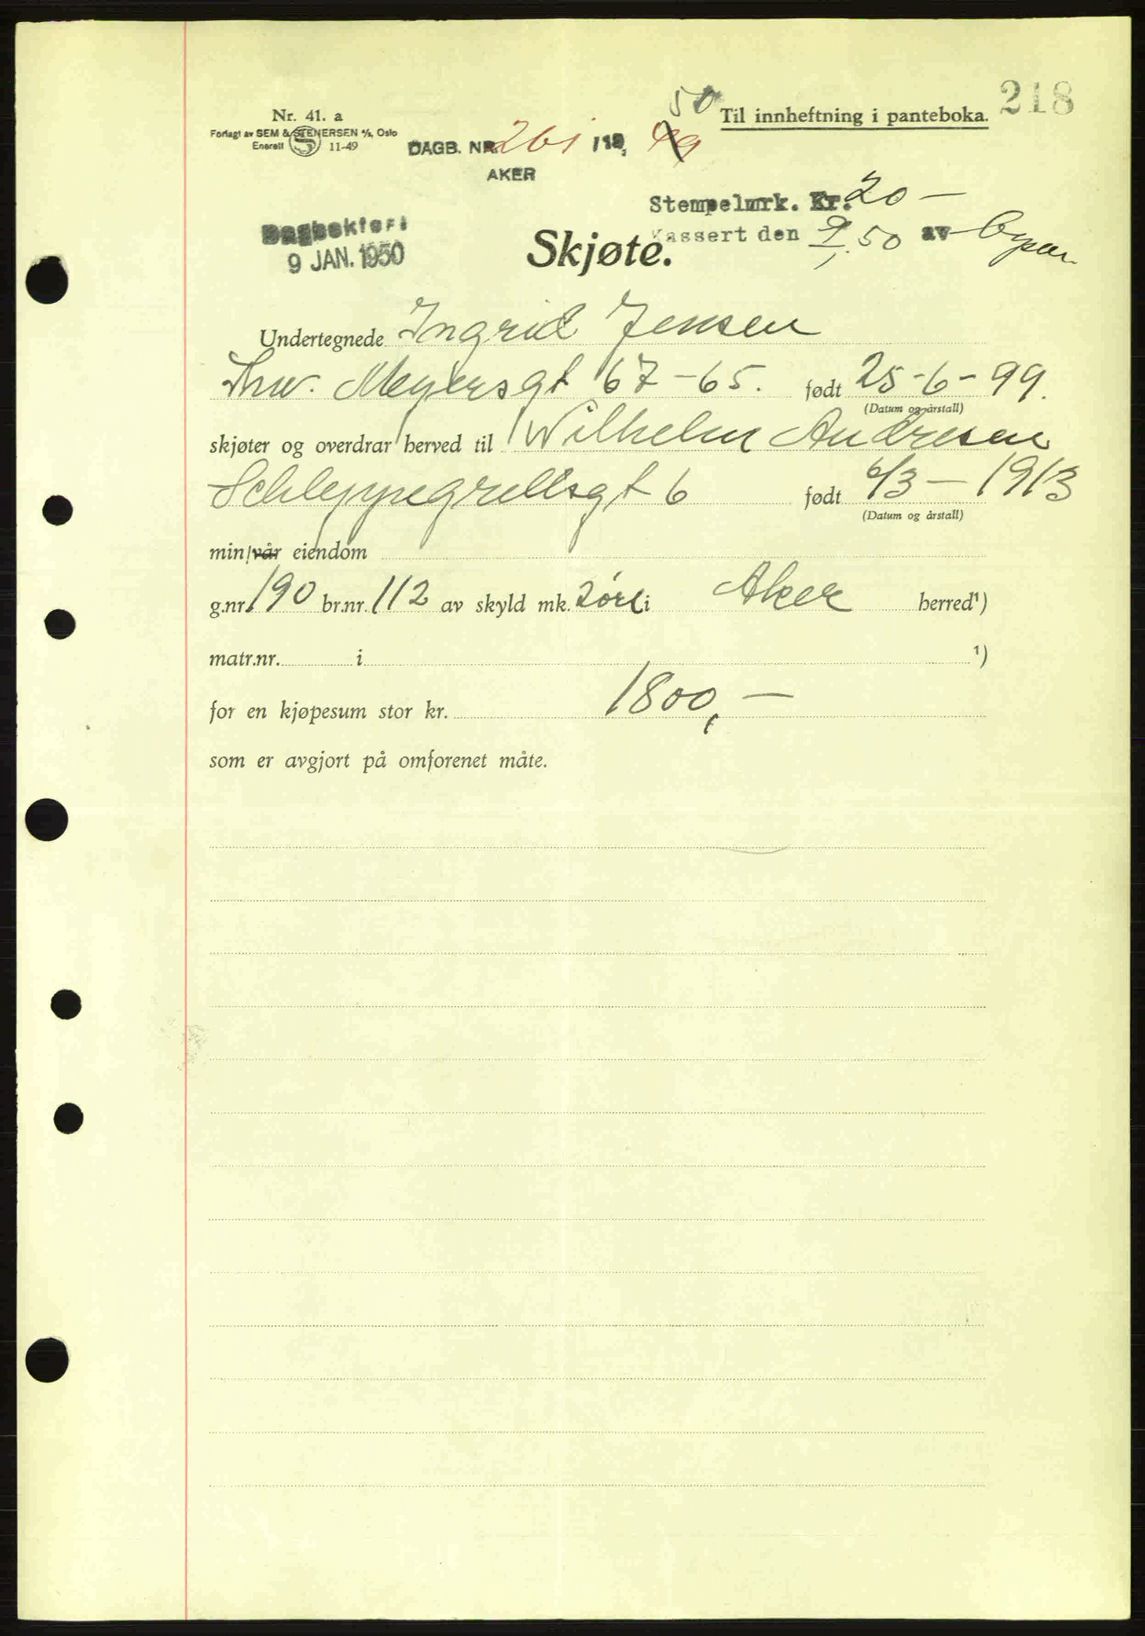 218
50
Nr. 41. a
Til innheftning i panteboka.
Forlagt av SEM & STENERSEN A/S, Oslo
Enerett S 11-49
DAGB. NR. 261 / 19 49
AKER
Stempelmrk. Kr. 20 —
Dagbokført
Kassert den 9/1.50 av
9 JAN. 1950
Skjøte.
Undertegnede Ingrid Jensen
Thv. Meyersgt 67-65. født 25-6-99.
(Datum og årstall)
skjøter og overdrar herved til Wilhelm Andresen
Schleppegrellsgt 6 født 6/3 — 1913
(Datum og årstall)
min/vår eiendom
g.nr. 190 br.nr. 112 av skyld mk. 2 øre i Aker herred¹)
matr.nr. i ¹)
for en kjøpesum stor kr. 1800,—
som er avgjort på omforenet måte.